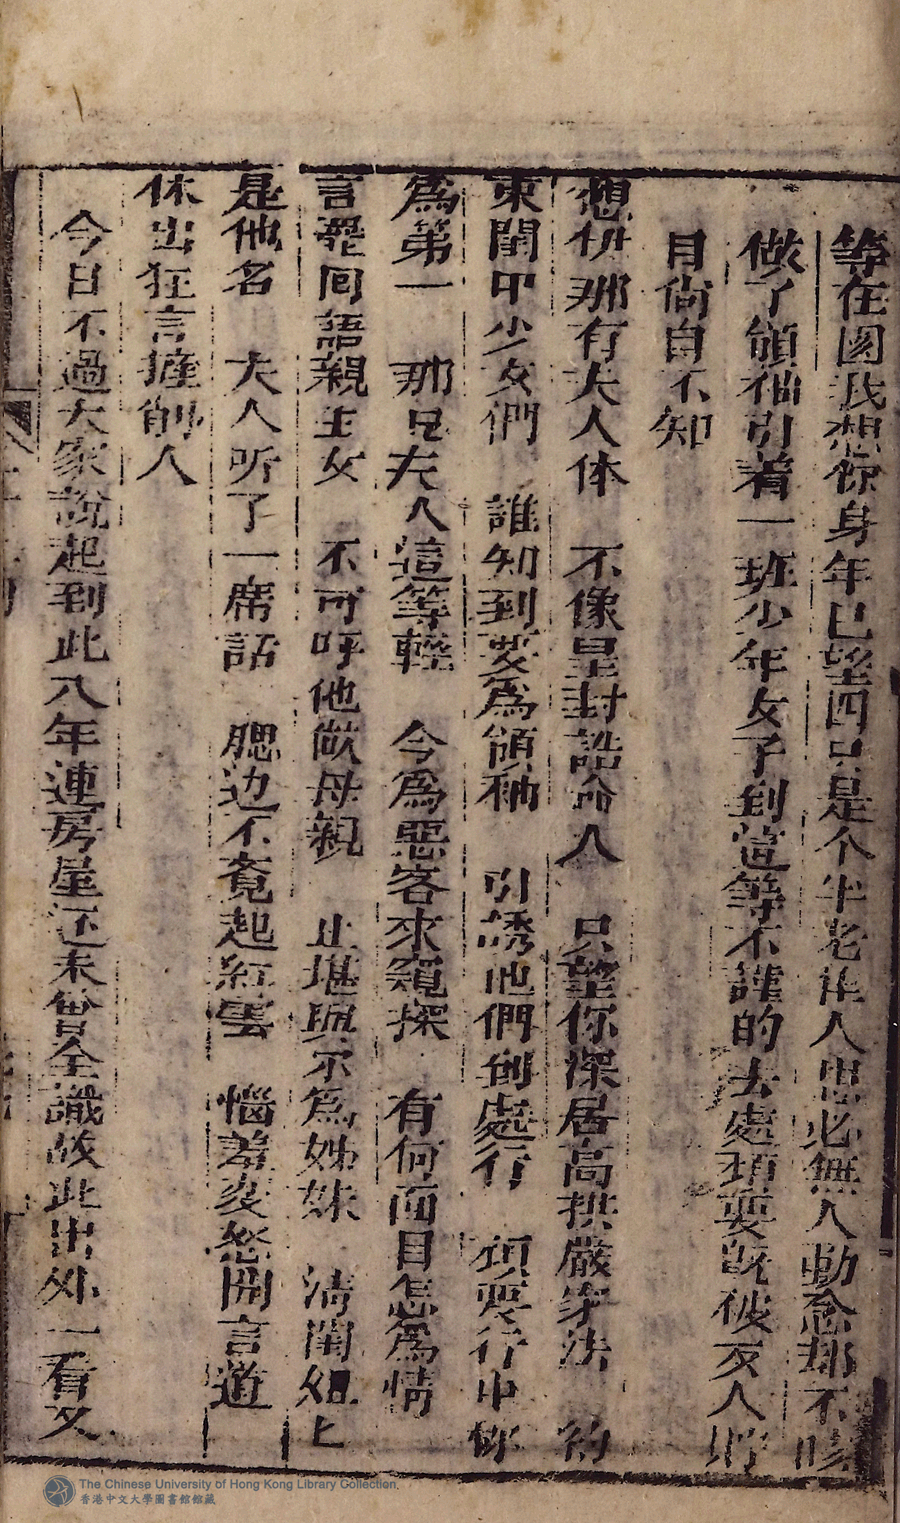 等在園我想你身年已望四只是个半老佳人思必無人動念却不
做了領袖引着一班少年女子到這等不謹的去處頑耍既被歹人
目尚自不知
想伊那有夫人体　不像皇封誥命人　只望你深居高拱嚴家法　約
束閨中少女們　誰知到要為領袖　引誘他們到處行　頑耍行中你
為第一　那見夫人這等輕　今為惡客來窺探　有何面目怎為情
言罷回語親生女　不可呼他做母親　止堪與尔為姊妹　清閨姐上
是他名　夫人听了一席話　腮边不覔起紅雲　惱羞变怒開言道
休出狂言擅削人
今日不過大家說起到此八年連房屋还未曾全識故此出外一看又
The Chinese University of Hong Kong Library Collection.
香港中文大學圖書館館藏